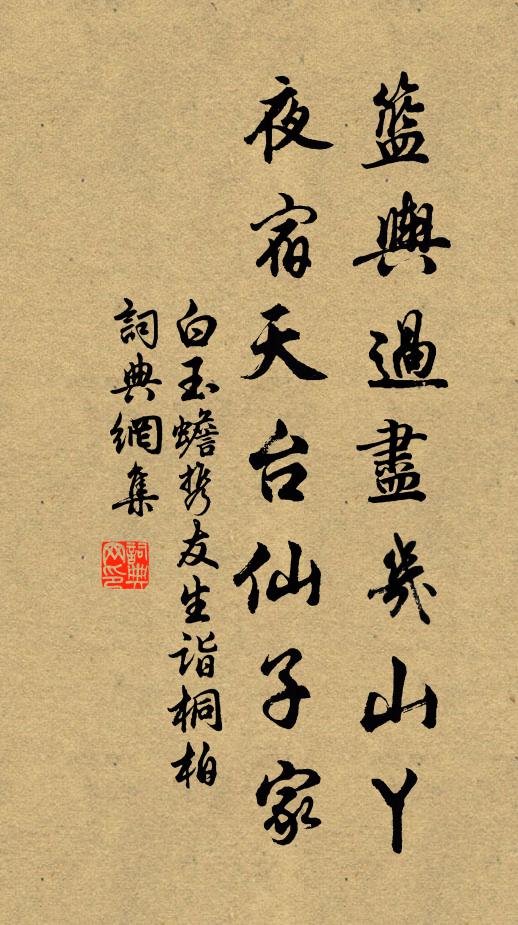 籃輿過盡幾山丫
夜宿天台仙子家
白玉蟾携友生詣桐柏
詞典網集
詞典網印